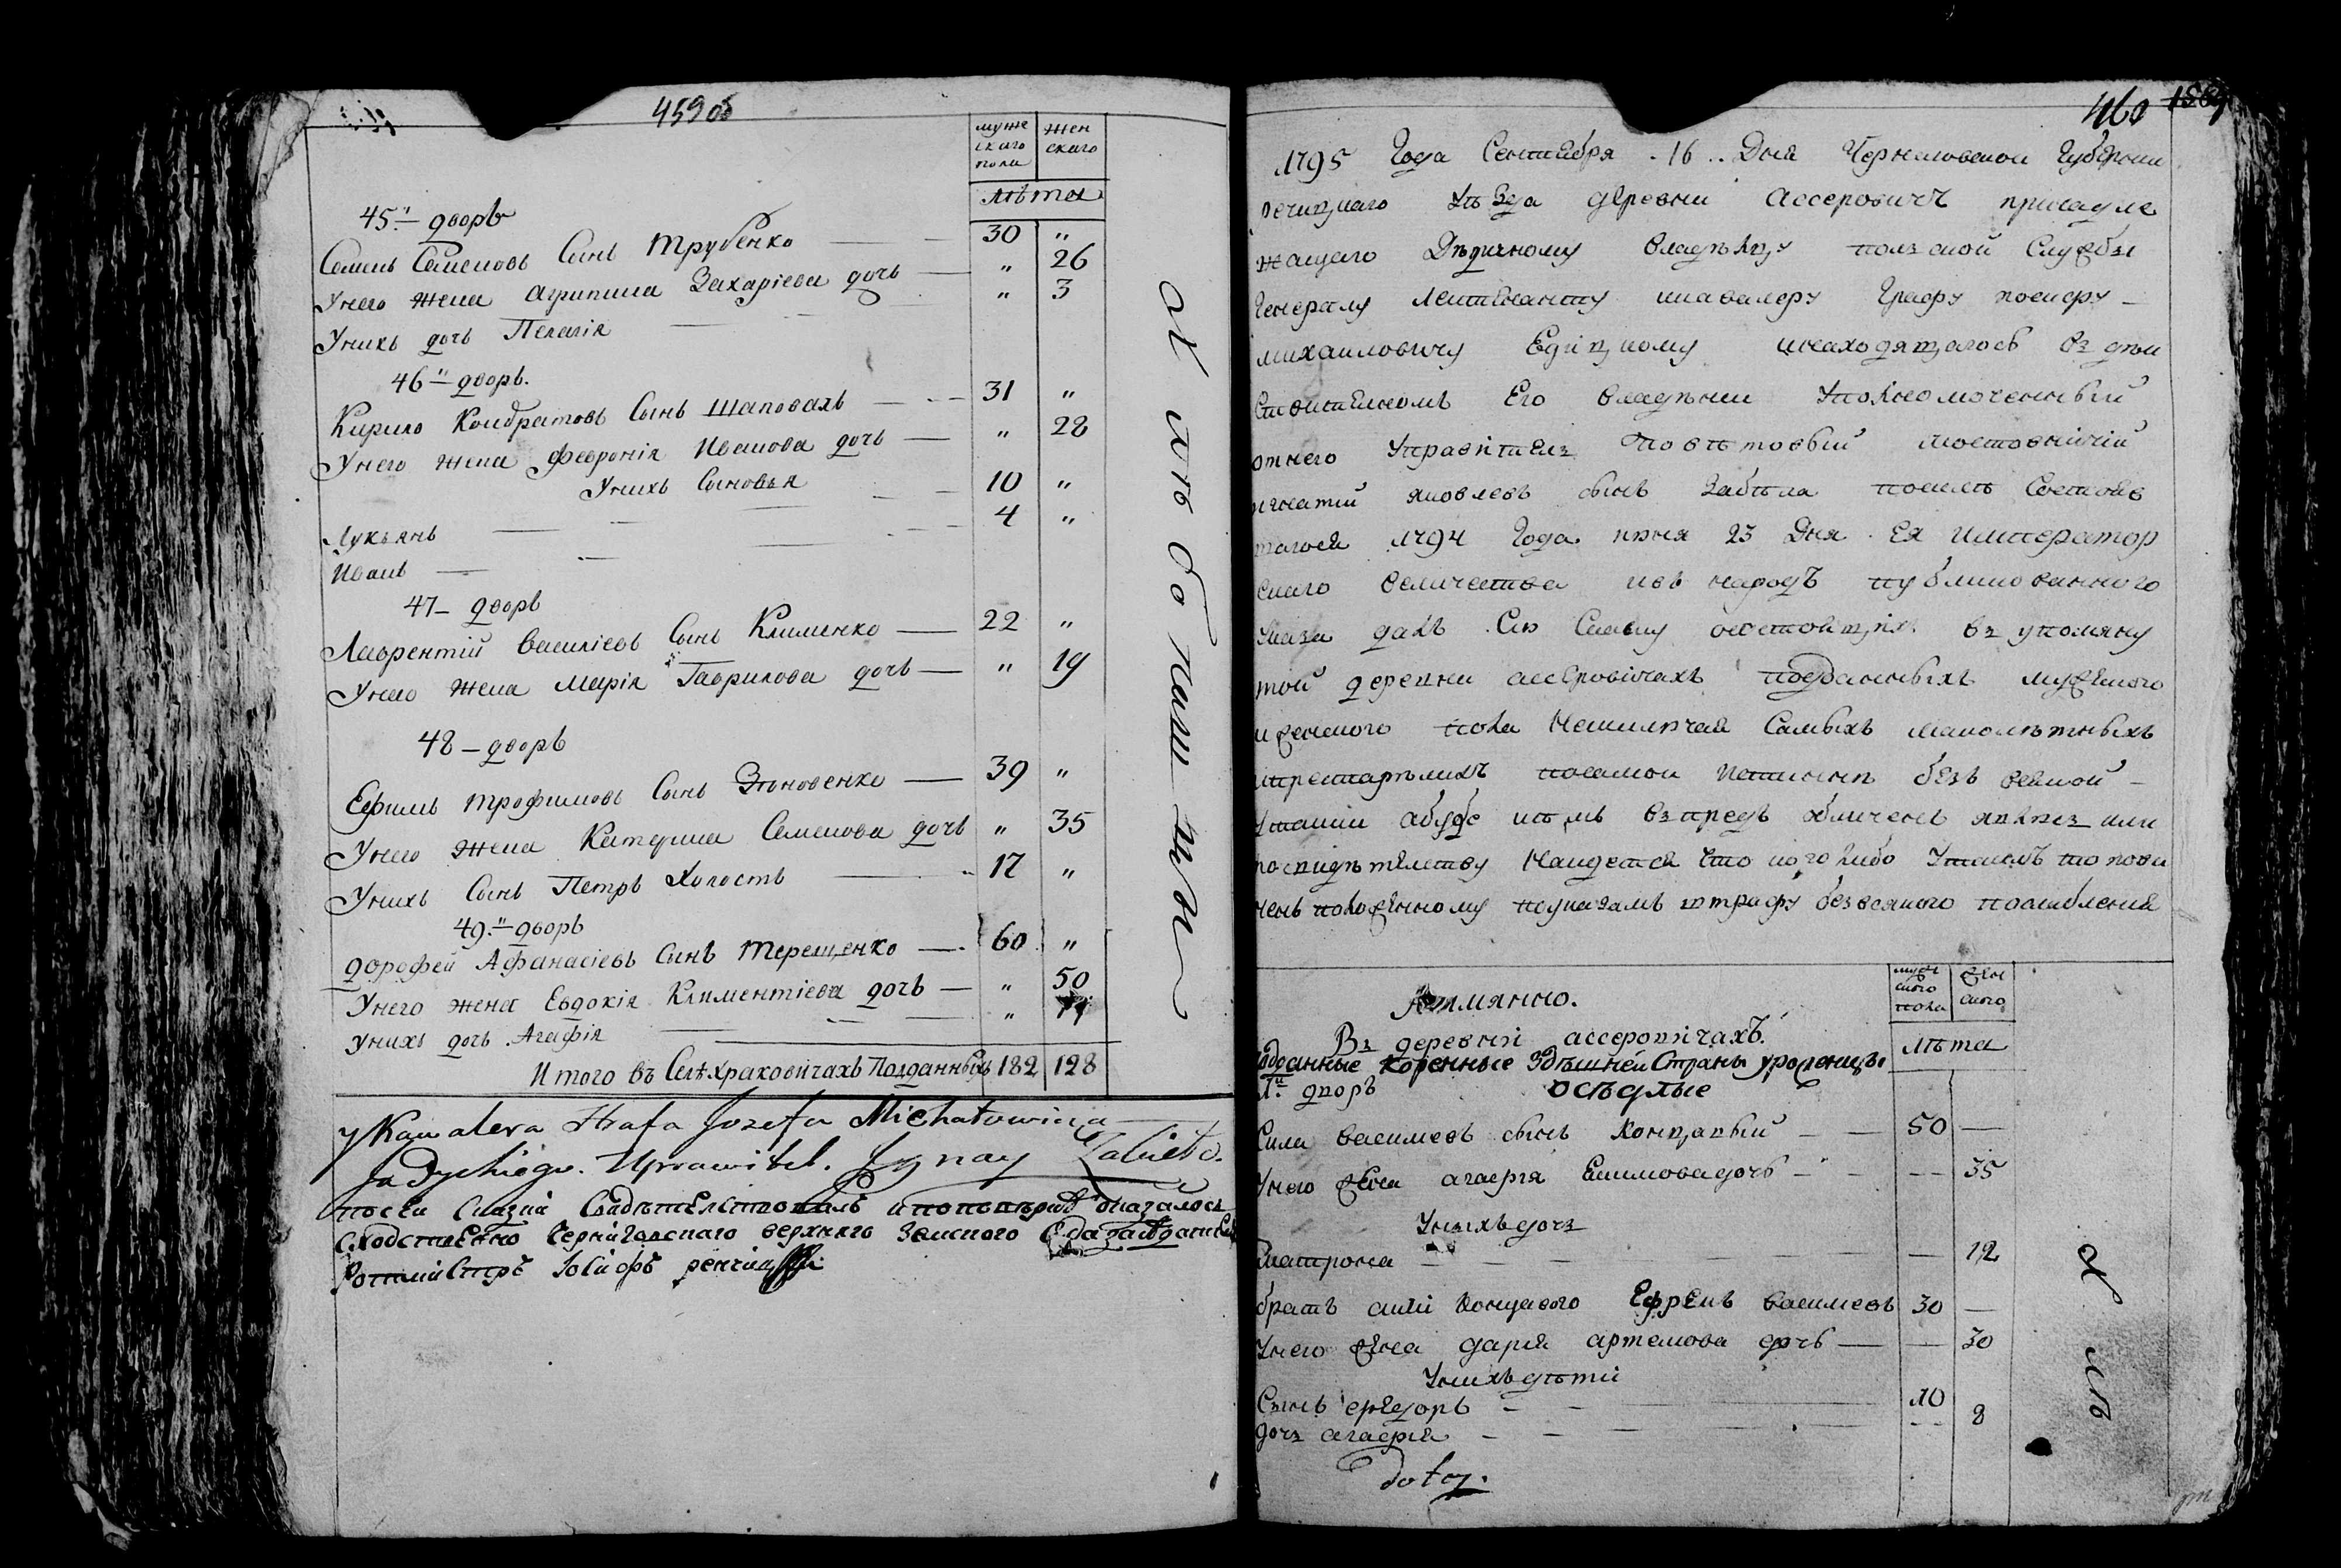 459 об
муже
скаго
пола
жен
скаго
лѣта
45й дворъ
Семенъ Семеновъ Сынъ Трубенко 30 "
Унего жена Агрипина Захаріева дочь " 26
Унихъ дочь Пелагія " 3
46й дворъ.
Кирило Кондратовъ Сынъ Шаповалъ 31 "
Унего жена Февронія Иванова дочь " 28
Унихъ Сыновья
Лукьянъ 10 "
Иванъ 4 "
47 дворъ
Лаврентій Василіевъ Сынъ Клименко 22 "
Унего жена Марія Гаврилова дочь " 19
48 дворъ
Ефимъ Трофимовъ Сынъ Зѣновенко 39 "
Унего жена Катерина Семенова дочь " 35
Унихъ Сынъ Петръ Холостъ 17 "
49й дворъ
Дорофей Афанасіевъ Сынъ Терещенко 60 "
Унего жена Евдокія Климентіева дочь " 50
Унихъ дочь Агафія "
Итого въ Селѣ Храковичахъ Подданныхъ 182 128
y Kawalera Hrafa Jozefa Michałowicza
Uprawitel. Jgnacy Zabieło.
посей Сказкѣ Свидѣтелствовалъ оказалось
Сходственно Черниговскаго верхняго Земского Суда
Ротмистръ Іосифъ
460
1795 Года Сентября 16 Дня Черниговской Губерніи
речицкаго Уѣзда деревни Ассеровичъ принадле
жащаго Дѣдичному владѣлцу полской Службы
Генералу Лейтенанту икавалеру Графу иосифу
михаиловичу инаходящагось въ дѣй
ствителномъ Его владѣнии Уполномоченный
отнего Управитель Повѣтовый мостовничій
игнатій яковлевъ сынъ Забѣла посилѣ Состояв
шагося 1794 Года июня 23 Дня Ея Император
скаго величества ивъ народъ публикованного
указа далъ Сію Сказку осостоящихъ въ упомяну
той деревни ассеровичахъ подданныхъ мужеского
иженского пола Неисключая Самыхъ малолѣтныхъ
ипрестарѣлихъ посамой истиннѣ безъ всякой
утайки абуде кѣмъ въпредь обличенъ явлюсь или
посвидѣтелству Найдется что кого либо Утаилъ то пови
ненъ положенному поуказамъ штрафу безвсякого послабления
Имянно.
муже
ского
пола
жен
ского
лѣта
Въ деревни ассеровичахъ.
Подданные Коренные Здѣшней Страны уроженцы
1й дворъ осѣдлые
Сила василиевъ сынъ Концавый 50 —
Унего жена агафия Екимова дочь — 35
Унихъ дочь
Матрона — 12
братъ Силы Концавого Ефремъ василиевъ 30 —
Унего жена дария артемова дочь — 30
Унихъ дѣти
Сынъ 10
дочь агафия 8